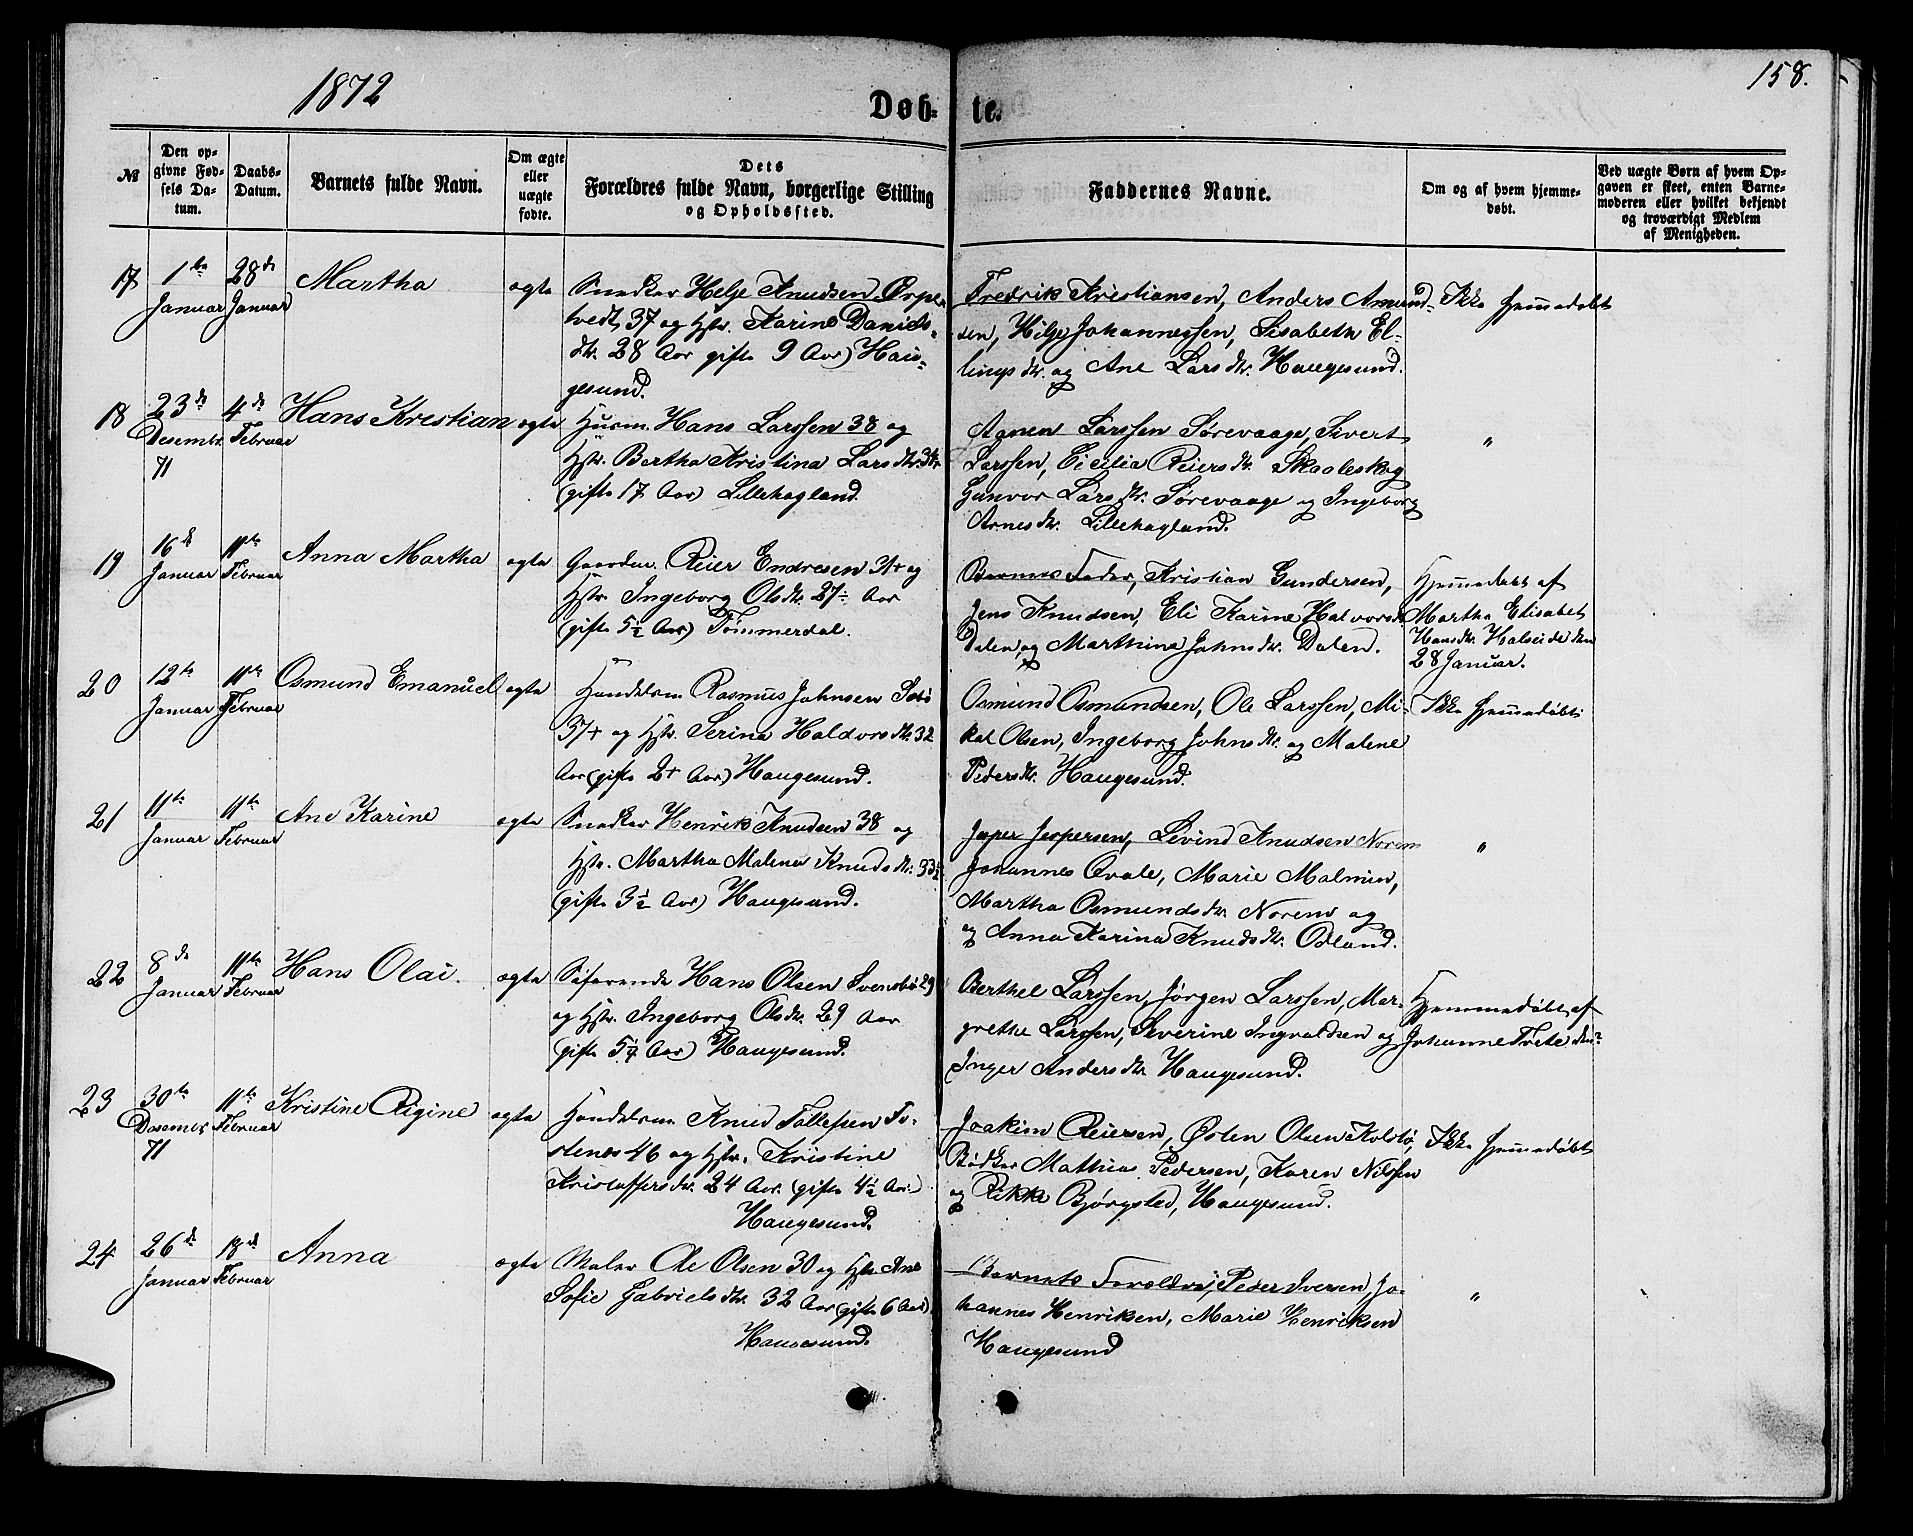 1872
158.
Døb- te.
№
Den opgivne Fødsels Datum.
Daabs-Datum.
Barnets fulde Navn.
Om ægte eller uægte fødte.
Dets Forældres fulde Navn, borgerlige Stilling og Opholdssted.
Faddernes Navne.
Om og af hvem hjemmedøbt.
Ved uægte Børn af hvem Opgaven er skeet, enten Barnemoderen eller hvilket bekjendt og troværdigt Medlem af Menigheden.
17
1te Januar
28de Januar
Martha
ægte
Snedker Helje Knudsen Ørpe-
tvedt, 37 og Hstr. Karine Daniels-
dtr. 28 Aar gifte 9 Aar) Hau-
gesund.
Fredrik Kristiansen, Anders Amund-
sen, Hilje Johannessen, Lisabeth El-
lingsdtr. og Ane Larsdtr. Haugesund.
Ikke hjemmedøbt
18
23de Desembr. 71
4de Februar
Hans Kristian
ægte
Husm. Hans Larssen 38 og
Hstr. Bertha Kristina Larsdtr. 34
(gifte 17 Aar) Lillehagland.
Aanen Larssen Sørevaage, Sivert
Larssen, Cicilia Reiersdtr. Skaaleskog
Gunvor Larsdtr. Sørevaage og Ingeborg
Arnesdtr. Lillehagland.
"
19
16de Januar
11te Februar
Anna Martha
ægte
Gaardm. Reier Endresen 31+ og
Hstr. Ingeborg Olsdtr. 27 Aar
(gifte 5½ Aar) Tømmerdal.
Barnets Fader, Kristian Gundersen,
Jens Knudsen, Eli Karine Halvorsdtr.
Dalen, og Marthine Johnsdtr. Dalen.
Hjemmedøbt af
Martha Elisabet
Hansdtr. Halseide den
28 Januar.
20
12te Januar
11te Februar
Osmund Emanuel
ægte
Handelsm. Rasmus Johnsen Sæbø
37+ og Hstr. Serina Haldorsdtr. 32
Aar (gifte 2+ Aar) Haugesund.
Osmund Osmundsen, Ole Larssen, Mi-
kal Olsen, Ingeborg Johnsdtr. og Malene
Pedersdtr. Haugesund.
Ikke hjemmedøbt
21
11te Januar
11te Februar
Ane Karine
ægte
Snedker Henrik Knudsen 38 og
Hstr. Martha Malena Knudsdtr. 33½
(gifte 3½ Aar) Haugesund.
Jesper Jespersen, Eivind Knudsen Norem
Johannes Qvale, Marie Malmin,
Martha Osmundsdtr. Norem og
og Anna Karina Knudsdtr. Odland.
"
22
8de Januar
11te Februar
Hans Olai.
ægte
Søfarende Hans Olsen Svensbø 29
og Hstr. Ingeborg Olsdtr. 29 Aar
(gifte 5¼ Aar) Haugesund.
Berthel Larssen, Jørgen Larssen, Mar-
grethe Larssen, Severine Ingvaldsen og
Inger Andersdtr. Haugesund.
Hjemmedøbt af
Johanne Tvete den?
23
30te Desembr. 71
11te Februar
Kristine Rigine
ægte
Handelsm. Knud Tollefsen To-
stenes 46 og Hstr. Kristine
Kristoffersdtr. 24 Aar. (gifte 4½ Aar)
Haugesund.
Joakim Reiersen, Østen Olsen Kolstø,
Bødker Mathias Pedersen, Karen Nilssen
og Rikke Bjørgsted, Haugesund.
Ikke hjemmedøbt
24
26de Januar
18de Februar
Anna
ægte
Maler Ole Olsen 30 og Hstr. Ane
Sofie Gabrielsdtr. 32 Aar (gifte 6 Aar)
Haugesund.
Barnets Forældre, Peder Iversen, Jo-
hannes Henriksen, Marie Henriksen
Haugesund
"